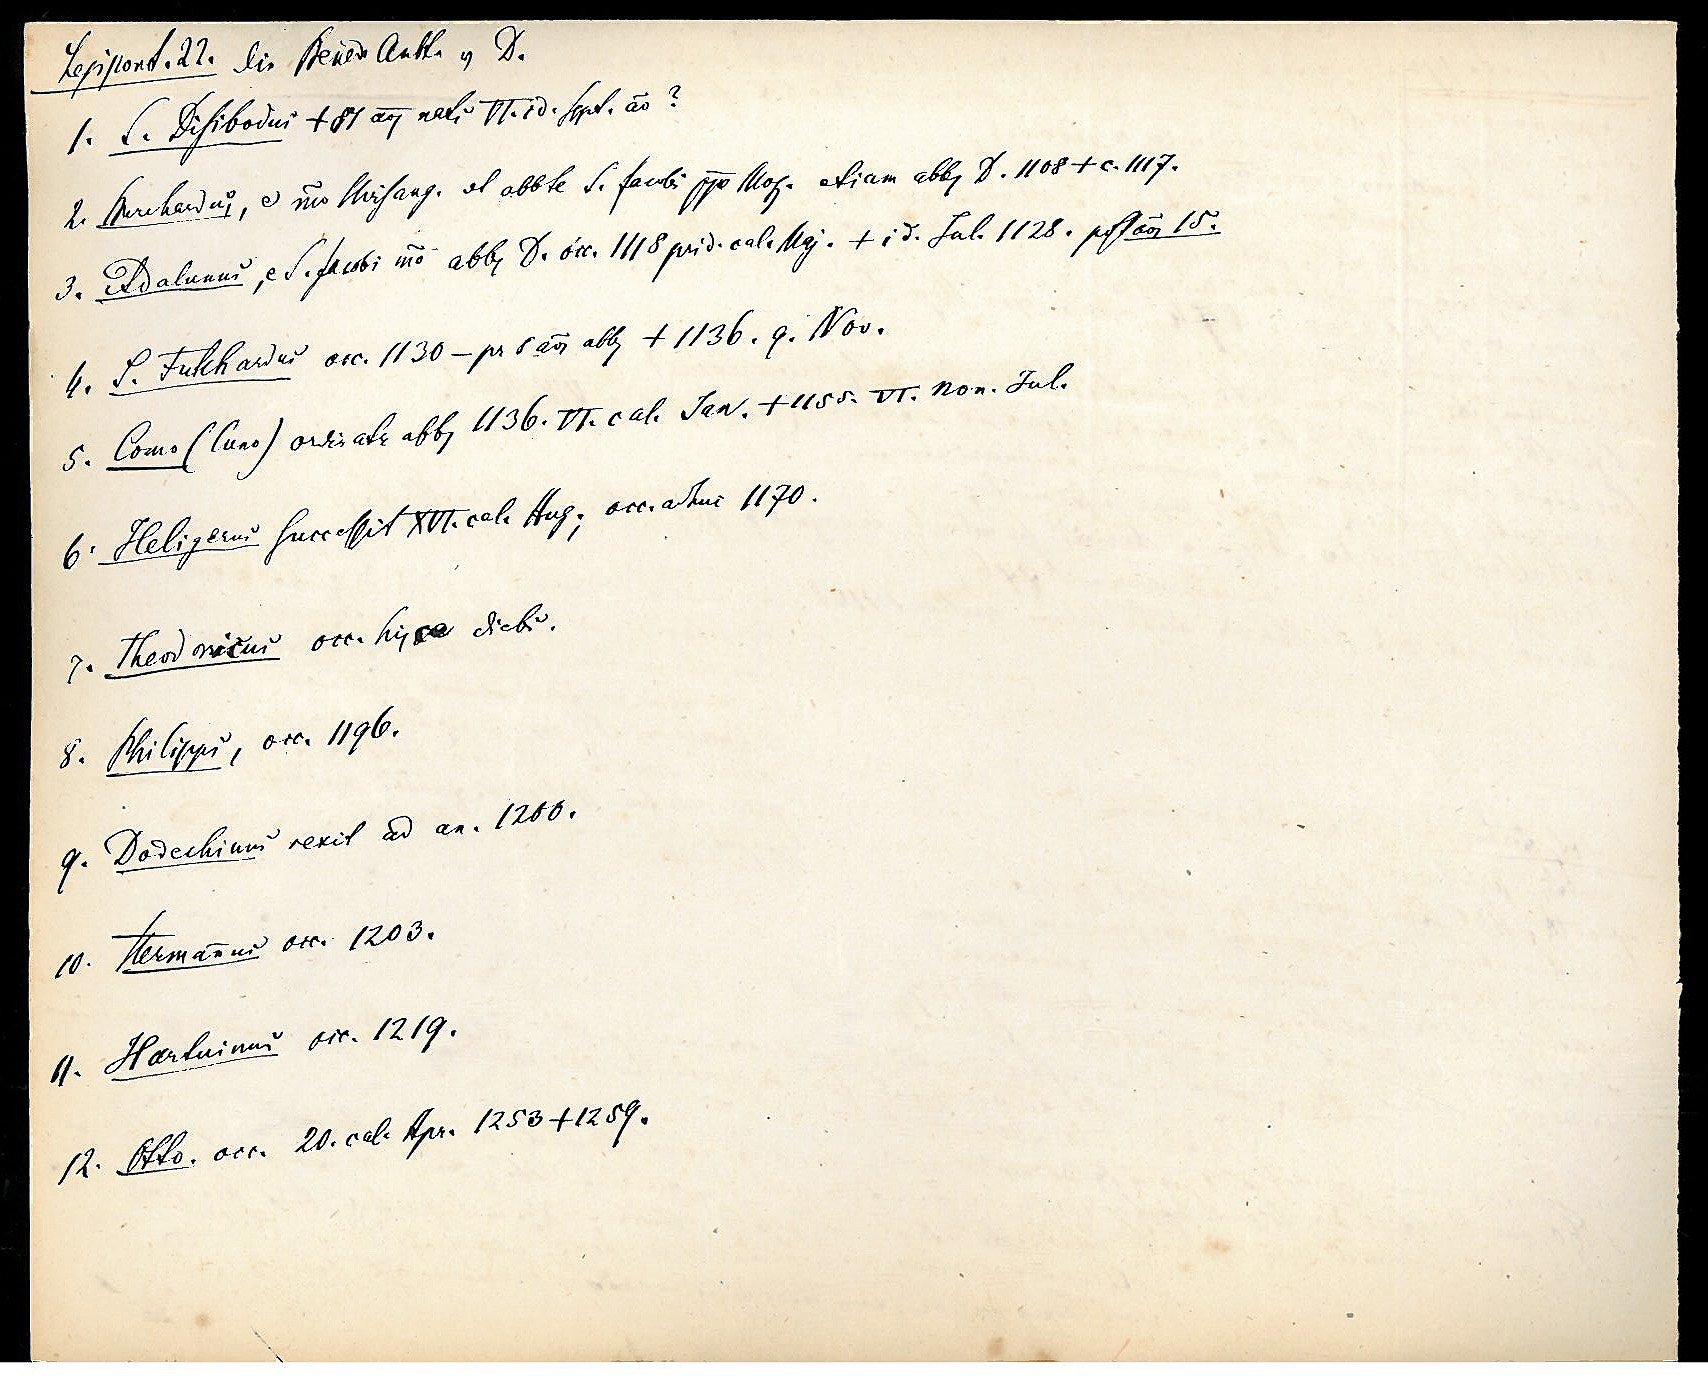 Legipont. 22. die Bened Aebte v D.
1. S. Disibodus + 81 āoꝝ natū VI. id. Spt. āo ?
2. Burchardus, e mō Hirsaug. et abbte S. Jacobi ppe Mog. etiam abbꝫ D. 1108 + c. 1117.
3. Adalunus, e S. Jacobi mō abbꝫ D. occ. 1118 prid. cal. Maj. + id. Jul. 1128. post āoꝝ 15.
4. S. Fulchardus occ. 1130 – pr 6 āoꝝ abbꝫ + 1136. 9. Nov.
5. Como (Cuno) ordinatꝫ abbꝫ 1136. VI. cal. Jan. + 1155. VI. non. Jul.
6. Heligerus successit XVI. cal. Aug., occ. adhuc 1170.
7. Theodoricus occ. hisce diebū.
8. Philippū, occ. 1196.
9. Dodechinus rexit ad an. 1200.
10. Herman̄us occ. 1203.
11. Hartwinus occ. 1219.
12. Otto. occ. 20. cal. Apr. 1253 + 1259.